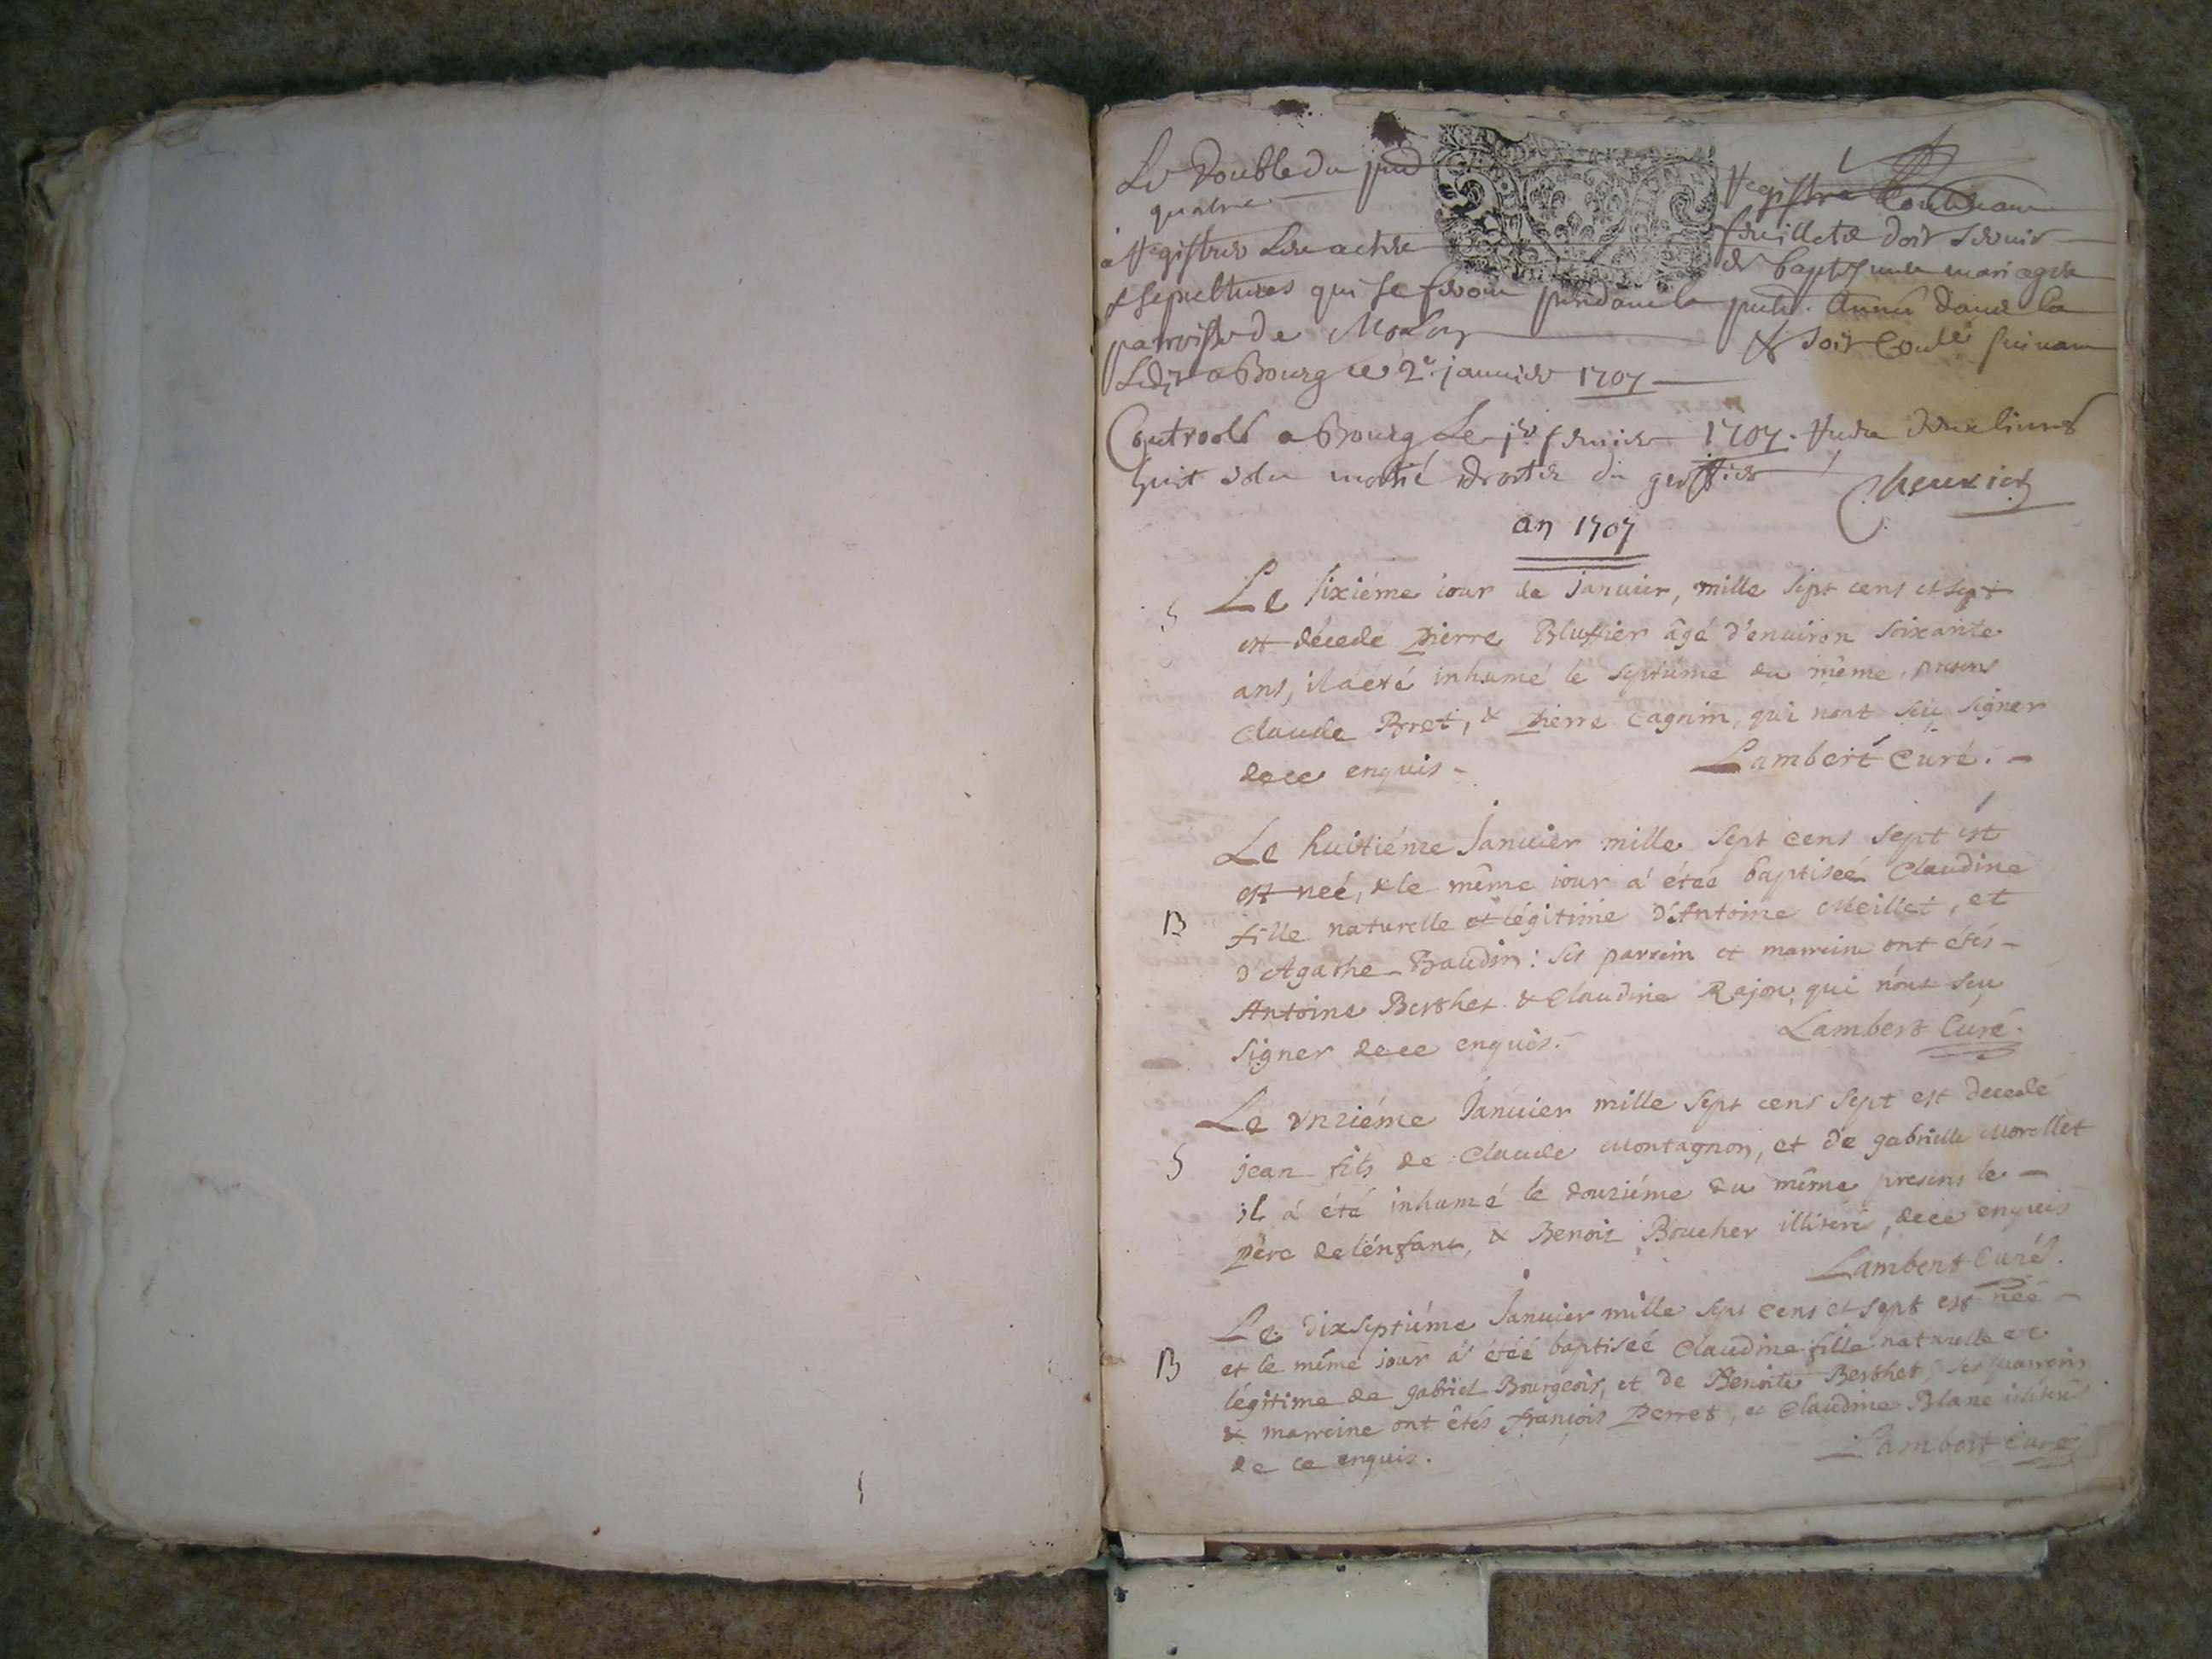 Le Double du pnt Registre Contenant
quatre feuillets doit servir
a Registrer Les actes de baptesmes mariages
& sepultures qui se feront pendant la pnte. année dans la
parroisse de & soit Coulé suivant
Ledit a Bourg ce 2e. janvier 1707
Controolé a Bourg Le jer fevrier 1707. Receu deux livres
huit sols moitié droits du greffier
an 1707
S Le sixiéme iour de Januier, mille sept cens et sept
est décedé Pierre Bluffier âgé d'enuiron soixante
ans, il a été inhumé le septiéme du même, presens
Claude Prret, & Pierre Cagnin, qui nont sçu signer
de ce enquis - Lambert Curé. -
Le huitiéme Januier mille sept cens sept est
est neé, & le même iour á éteé baptiseé Claudine
B fille naturelle et légitime d'Antoine Meillet, et
d'Agathe Baudin : ses parrein et marreine ont étés -
Antoine Berthet & Claudine Rajon, qui n'ont seu
signer de ce enquis. Lambert Curé.
Le vnziéme Januier mille sept cens sept est decedé
S jean fils de Claude Montagnon, et de gabrielle Morellet
il á été inhumé le douziéme du même presens le -
Pére de lénfant, & Benoit Boucher illiteré, de ce enquis
Lambert Curé.
Le dixseptiéme Januier mille sept cens et sept est née -
B et le même iour á éteé baptiseé Claudine fille naturelle et
légitime de gabriel Bourgeois, et de Benoite Berthet, ses parrein
& marreine ont êtés françois Perret, et Claudine Blanc illiterés
de ce enquis. Lambert Curé